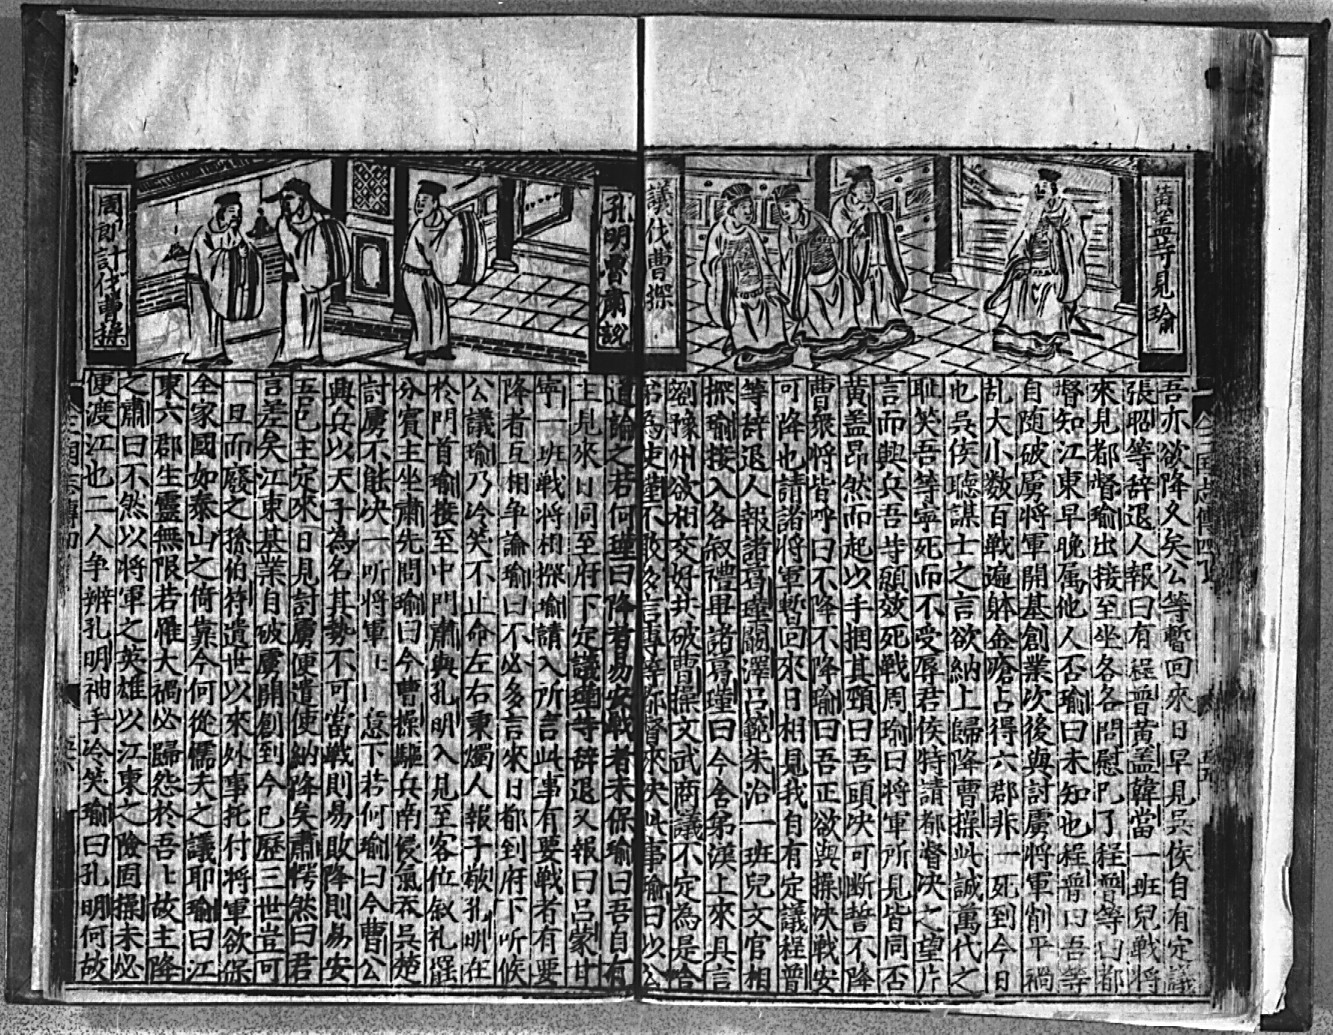 黄盖等見瑜
議伐曹操
吾亦欲降久矣公等暫回來日早見吳侯自有定議
張昭等辞退人報曰有程普黄盖韓當一班兒戰將
來見都督瑜出接至坐各各問慰已了程普等曰都
督知江東早晚属他人否瑜曰未知也程普曰吾等
自随破虜將軍開基創業次後與討虜將軍削平禍
乱大小数百戰遍躰金瘡占得六郡非一死到今日
也吳侯聽謀士之言欲納上歸降曹操此誠萬代之
耻笑吾等寧死而不受辱君侯特請都督决之望片
言而興兵吾等願效死戰周瑜曰將軍所見皆同否
黄盖昂然而起以手掴其頸曰吾頭决可断誓不降
曹衆將皆呼曰不降不降瑜曰吾正欲與操决戰安
可降也請諸將軍暫回來日相見我自有定議程普
等辞退人報諸葛瑾闞澤吕範朱治一班兒文官相
探瑜接入各叙禮畢諸葛瑾曰今舍弟漢上來具言
劉豫州欲相交好共破曹操文武商議不定為是舍
弟為使瑾不敢多言專等都督來决此事瑜曰以公
孔明魯肅說
周郎計伐曹操
道論之若何瑾曰降者易安戰者未保瑜曰吾自有
主見來日同至府下定議瑾等辞退又報曰吕蒙甘
寧一班戰將相探瑜請入所言此事有要戰者有要
降者互相争論瑜曰不必多言來日都到府下听候
公議瑜乃冷笑不止命左右秉燭人報子敬孔明在
於門首瑜接至中門肅與孔明入見至客位叙礼畢
分賓主坐肅先問瑜曰今曹操驅兵南侵氣吞吳楚
討虜不能决一听將軍將軍意下若何瑜曰今曹公
興兵以天子為名其勢不可當戰則易敗降則易安
吾已主定來日見討虜便遣使納降矣肅愕然曰君
言差矣江東基業自破虜開創到今已歷三世豈可
一旦而廢之孫伯符遺世以來外事托付將軍欲保
全家國如泰山之倚靠今何從儒夫之議耶瑜曰江
東六郡生靈無限若罹大禍必歸怨於吾吾故主降
之肅曰不然以將軍之英雄以江東之險固操未必
便渡江也二人争辨孔明袖手冷笑瑜曰孔明何故